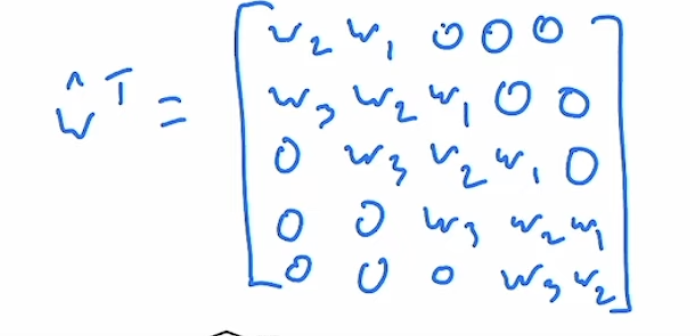 ŵᵀ = [ w₂ w₁ 0 0 0
w₃ w₂ w₁ 0 0
0 w₃ w₂ w₁ 0
0 0 w₃ w₂ w₁
0 0 0 w₃ w₂ ]